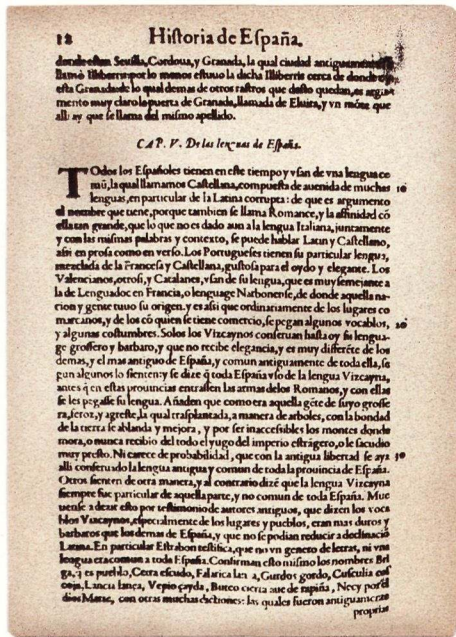 18 Historia de España.
donde estan Seuilla, Cordoua, y Granada, la qual ciudad antiguamente se
llamò Illiberris: por lo menos estuuo la dicha Illiberris cerca de donde
esta Granada: de lo qual demas de otros rastros que desto quedan, es argu
mento muy claro la puerta de Granada, llamada de Eluira, y vn mõte que
alli ay que se llama del mismo apellido.
CAP. V. De las lenguas de España.
TOdos los Españoles tienen en este tiempo y vsan de vna lengua co
mũ, la qual llamamos Castellana, compuesta de auenida de muchas 10
lenguas, en particular de la Latina corrupta: de que es argumento
el nombre que tiene, porque tambien se llama Romance, y la affinidad cõ
ella tan grande, que lo que no es dado aun a la lengua Italiana, juntamente
y con las mismas palabras y contexto, se puede hablar Latin y Castellano,
assi en prosa como en verso. Los Portugueses tienen su particular lengua,
mezclada de la Francesa y Castellana, gustosa para el oydo y elegante. Los
Valencianos, otrosi, y Catalanes, vsan de su lengua, que es muy semejante a
la de Lenguadoc en Francia, o lenguage Narbonense, de donde aquella na-
cion y gente tuuo su origen. y es assi que ordinariamente de los lugares co
marcanos, y de los cõ quien se tiene comercio, se pegan algunos vocablos, 20
y algunas costumbres. Solos los Vizcaynos conseruan hasta oy su lengua-
ge grossero y barbaro, y que no recibe elegancia, y es muy differẽte de los
demas, y el mas antiguo de España, y comun antiguamente de toda ella, se
gun algunos lo sienten: y se dize q̃ toda España vso de la lengua Vizcayna,
antes q̃ en estas prouincias entrassen las armas de los Romanos, y con ellas
se les pegasse su lengua. Añaden que como era aquella gẽte de suyo grosse
ra, feroz, y agreste, la qual trasplantada, a manera de arboles, con la bondad
de la tierra se ablanda y mejora, y por ser inaccesibles los montes donde
mora, o nunca recibio del todo el yugo del imperio estrãgero, o le sacudio
muy presto. Ni carece de probabilidad, que con la antigua libertad se aya 30
alli conseruado la lengua antigua y comun de toda la prouincia de España.
Otros sienten de otra manera, y al contrario dizẽ que la lengua Vizcayna
siempre fue particular de aquella parte, y no comun de toda España. Mue
uense a dezir esto por testimonio de autores antiguos, que dizen los voca
blos Vizcaynos, especialmente de los lugares y pueblos, eran mas duros y
barbaros que los demas de España, y que no se podian reducir a declinaciõ
Latina. En particular Estrabon testifica, que no vn genero de letras, ni vna
lengua era comun a toda España. Confirman esto mismo los nombres Bri
ga, q̃ es pueblo, Cetra escudo, Falarica lança, Gurdos gordo, Cusculia cos
coja, Lancia lança, Vepio çayda, Buteo cierta aue de rapiña, Necy por el
dios Marte, con otras muchas dictiones: las quales fueron antiguamente
proprias